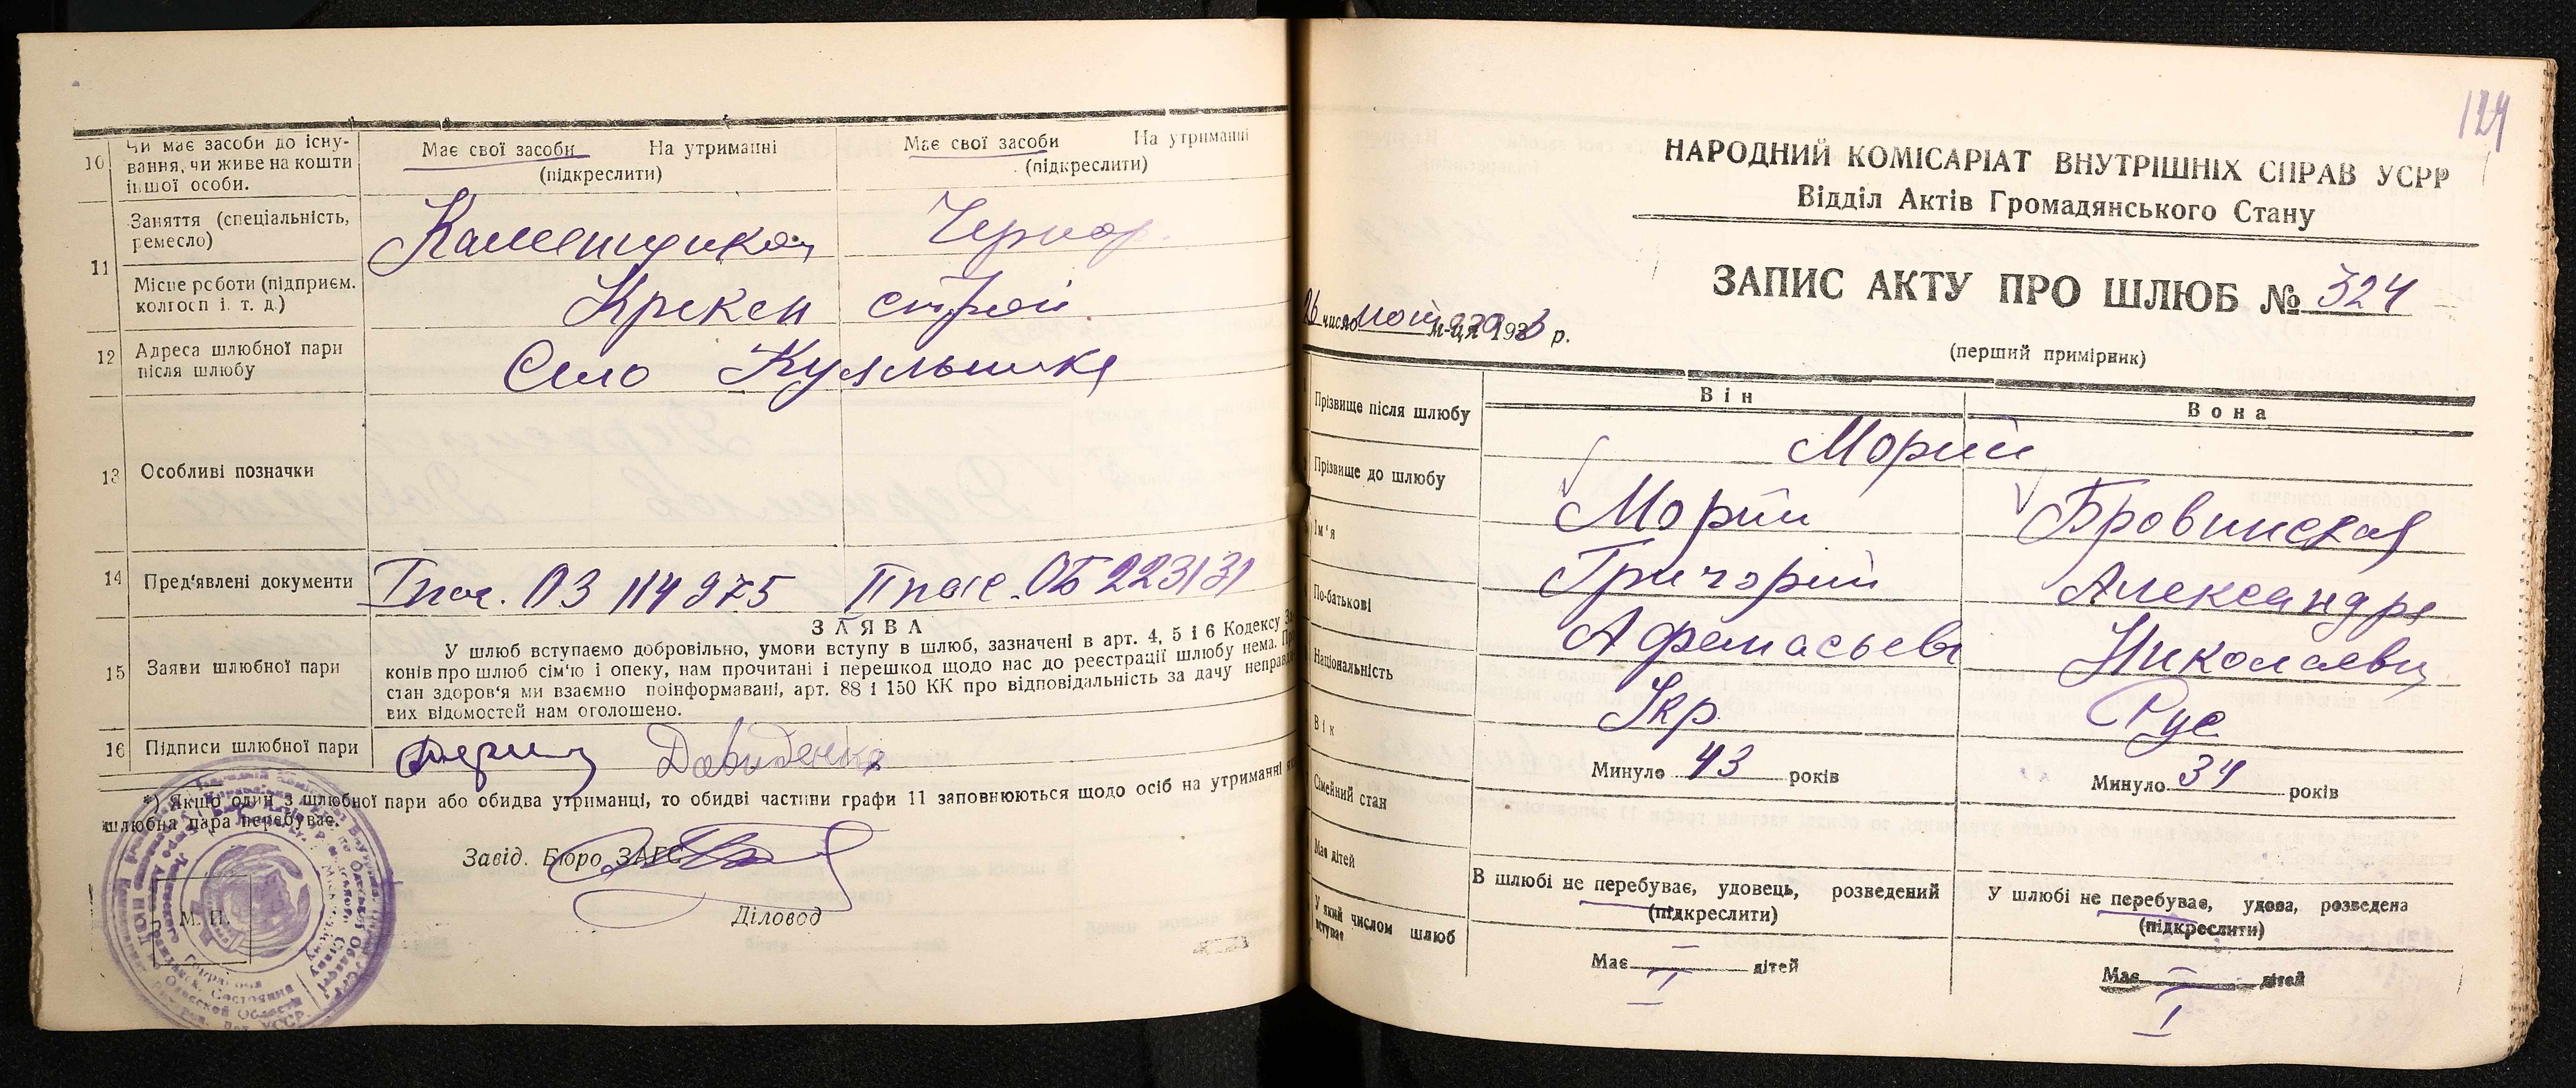 10 Чи має засоби до існу-
вання, чи живе на кошти
іншої особи.
Має свої засоби На утриманні
(підкреслити)
Має свої засоби На утриманні
(підкреслити)
11 Заняття (спеціальність,
ремесло)
Каменщик Чернор.
Місце роботи (підприєм.
колгосп і. т. д.)
Крекен строй
12 Адреса шлюбної пари
після шлюбу
Село Куяльник
13 Особливі позначки
14 Пред'явлені документи
I пас. ПЗ 114975 II пас. ОБ 223131
15 Заяви шлюбної пари
ЗАЯВА
У шлюб вступаємо добровільно, умови вступу в шлюб, зазначені в арт. 4, 5 і 6 Кодексу За
конів про шлюб сім'ю і опеку, нам прочитані і перешкод щодо нас до реєстрації шлюбу нема. Про
стан здоров'я ми взаємно поінформавані, арт. 88 і 150 КК про відповідальність за дачу неправди
вих відомостей нам оголошено.
16 Підписи шлюбної пари
Давиденко
*) Якщо один з шлюбної пари або обидва утриманці, то обидві частини графи 11 заповнюються щодо осіб на утриманні
шлюбна пара перебуває.
Завід. Бюро ЗАГС
Діловод
М. П.
124
НАРОДНИЙ КОМІСАРІАТ ВНУТРІШНІХ СПРАВ УСРР
Відділ Актів Громадянського Стану
ЗАПИС АКТУ ПРО ШЛЮБ № 324
26 число м-ця 193 р.
(перший примірник)
Він Вона
Прізвище після шлюбу
Морий
Прізвище до шлюбу
Морий Бровинская
Ім'я
Григорий Александра
По-батькові
Афанасьев Николаевн
Національність
Укр. Рус
Вік
Минуло 43 років
Минуло 34 років
Сімейний стан
В шлюбі не перебуває, удовець, розведений
(підкреслити)
У шлюбі не перебуває, удова, розведена
(підкреслити)
Має дітей
Має — дітей
Має — дітей
У який числом шлюб
вступає
I I